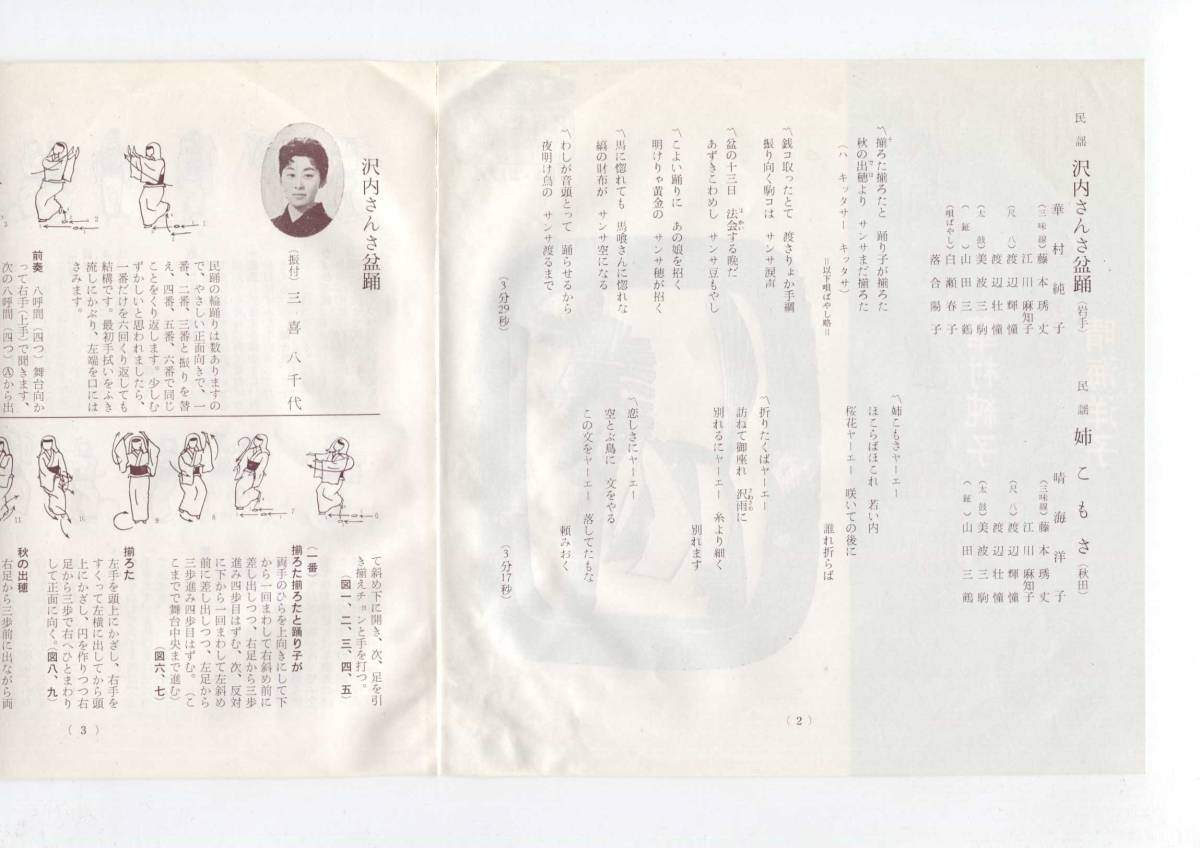 民謡 沢内さんさ盆踊（岩手）
華村純子
（三味線）藤本琇丈
江川麻知子
（尺八）渡辺輝憧
渡辺壮憧
（太鼓）美波三駒
（鉦）山田三鶴
（唄ばやし）白瀬春子
落合陽子
〽揃ろた揃ろたと 踊り子が揃ろた
秋の出穂より サンサまだ揃ろた
（ハ キッタサー キッタサ）
＝以下唄ばやし略＝
〽銭コ取ったとて 渡さりょか手綱
振り向く駒コは サンサ涙声
〽盆の十三日 法会する晩だ
あずきこわめし サンサ豆もやし
〽こよい踊りに あの娘を招く
明けりゃ黄金の サンサ穂が招く
〽馬に惚れても 馬喰さんに惚れな
縞の財布が サンサ空になる
〽わしが音頭とって 踊らせるから
夜明け烏の サンサ渡るまで
（3分29秒）
民謡 姉こもさ（秋田）
晴海洋子
（三味線）藤本琇丈
江川麻知子
（尺八）渡辺輝憧
渡辺壮憧
（太鼓）美波三駒
（鉦）山田三鶴
〽姉こもさヤーエー
ほこらばほこれ 若い内
桜花ヤーエー 咲いての後に
誰れ折らば
〽折りたくばヤーエー
訪ねて御座れ 沢雨に
別れるにヤーエー 糸より細く
別れます
〽恋しさにヤーエー
空とぶ鳥に 文をやる
この文をヤーエー 落してたもな
頼みおく
（3分17秒）
（2）
沢内さんさ盆踊
（振付）三喜八千代
民踊の輪踊りは数ありますの
で、やさしい正面向きで、一
番、二番、三番と振りを替
え、四番、五番、六番で同じ
ことをくり返します。少しむ
ずかしいと思われましたら、
一番だけを六回くり返しても
結構です。最初手拭いをふき
流しにかぶり、左端を口には
さみます。
前奏 八呼間（四つ）舞台向か
って右手（上手）で聞きます、
次の八呼間（四つ）Ⓐから出
て斜め下に開き、次、足を引
き揃えチョンと手を打つ。
（図一、二、三、四、五）
（一番）
揃ろた揃ろたと踊り子が
両手のひらを上向きにして下
から一回まわして右斜め前に
差し出しつつ、右足から三歩
進み四歩目はずむ、次、反対
に下から一回まわして左斜め
前に差し出しつつ、左足から
三歩進み四歩目はずむ。（こ
こまでで舞台中央まで進む）
（図六、七）
揃ろた
左手を頭上にかざし、右手を
すくって左横に出してから頭
上にかざし、円を作りつつ右
足から三歩で右へひとまわり
して正面に向く。（図八、九）
秋の出穂
右足から三歩前に出ながら両
（3）